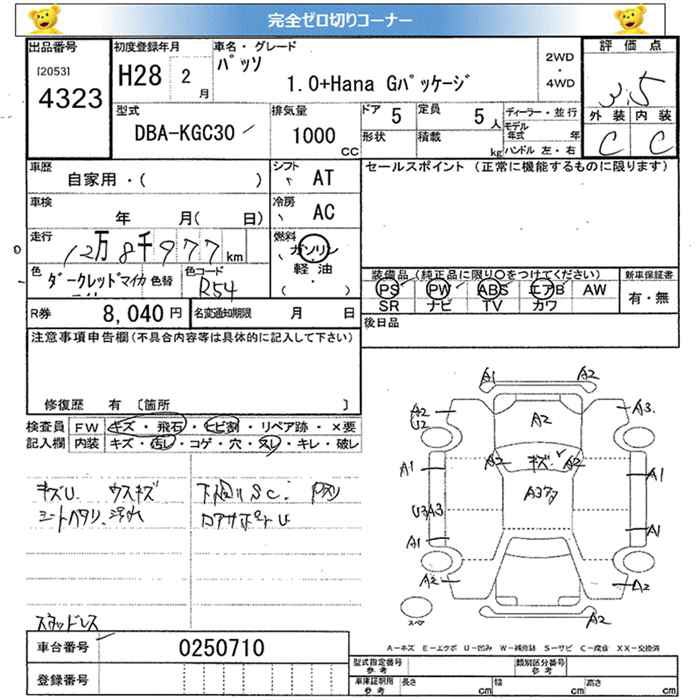 完全ゼロ切りコーナー
出品番号
[2053]
4323
初度登録年月
H28 2月
車名・グレード
パッソ
1.0+Hana Gパッケージ
2WD
・
4WD
評価点
3.5
外装 内装
C C
型式
DBA-KGC30
排気量
1000
CC
ドア 5
定員 5人
形状
積載 kg
ディーラー・並行
モデル年式 年
ハンドル 左・右
車歴
自家用・( )
シフト
AT
車検
年 月( 日)
冷房
AC
走行
12万8千977km
燃料
ガソリン
軽油
( ・ )
色
ダークレッドマイカ
色替
色コード
R54
R券 8,040円
名変通知期限 月 日
セールスポイント (正常に機能するものに限ります)
装備品(純正品に限り○をつけてください)
PS PW ABS エアB AW
SR ナビ TV カワ
新車保証書
有・無
後日品
注意事項申告欄(不具合内容等は具体的に記入して下さい)
修復歴 有 [箇所 ]
検査員 FW キズ・飛石・ヒビ割・リペア跡・×要
記入欄 内装 キズ・汚レ・コゲ・穴・スレ・キレ・破レ
キズU. ウスキズ
シートヘタリ. 汚れ
下回りSC.
コアサポートU
スタッドレス
車台番号 0250710
登録番号
A1 A2
A2
U2
A2
A3
A2 キズ A2
A1 A1
A37
U3 A3
A1 A1
A2 A2
A2
スペア
A-キズ E-エクボ U-凹み W-補修跡 S-サビ C-腐食 XX-交換済
型式指定番号
参考
類別区分番号
参考
車庫証明用
参考
長さ cm
幅 cm
高さ cm